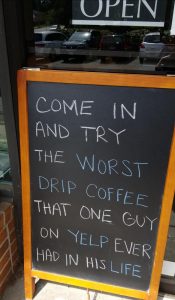 OPEN
COME IN
AND TRY
THE WORST
DRIP COFFEE
THAT ONE GUY
ON YELP EVER
HAD IN HIS LIFE